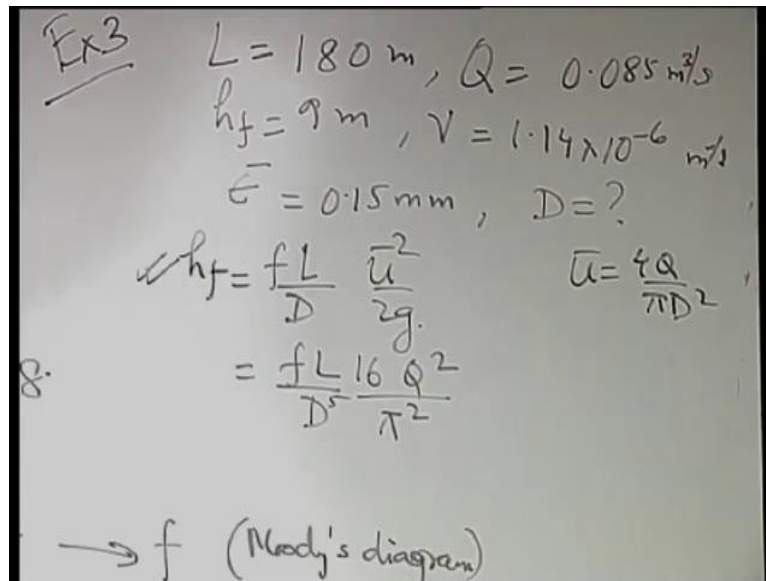 Ex3
L = 180 m, Q = 0.085 m³/s
hf = 9 m, ν = 1.14 × 10⁻⁶ m²/s
ε̄ = 0.15 mm, D = ?
✓ hf = fL/D ū²/2g. ū = 4Q/πD²
= fL/D⁵ 16 Q²/π²
8.
→ f (Moody's diagram)